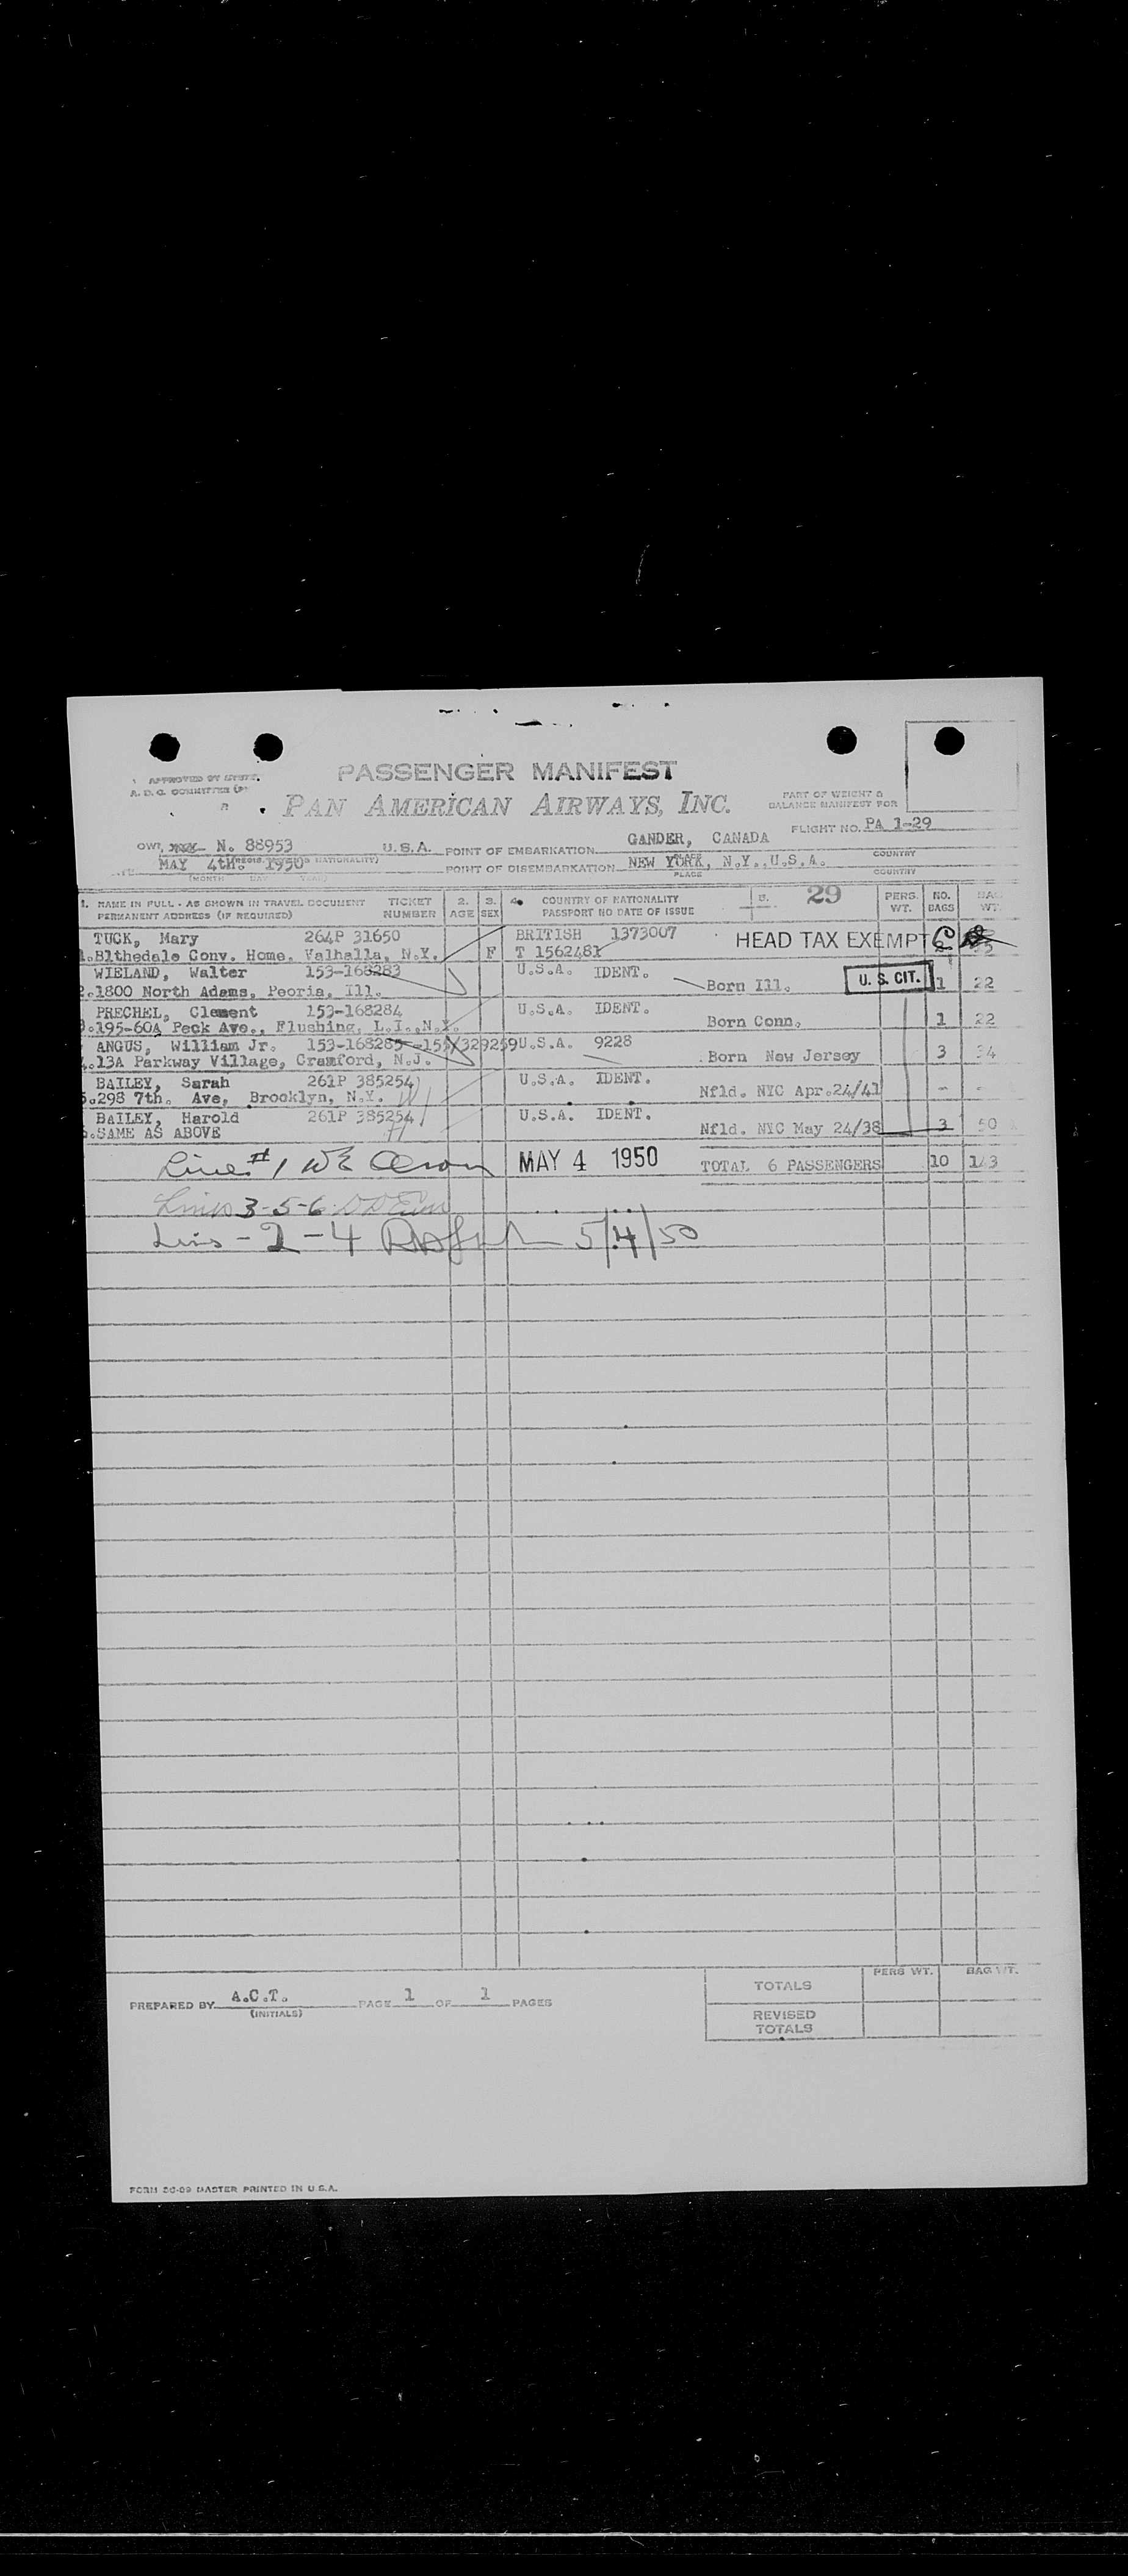 PASSENGER MANIFEST
APPROVED BY
A. D. C. COMMITTEE
PAN AMERICAN AIRWAYS, INC.
PART OF WEIGHT &
BALANCE MANIFEST FOR
FLIGHT NO. PA 1-29
N. 88953 U.S.A. POINT OF EMBARKATION GANDER, CANADA
PLACE COUNTRY
MAY 4th. 1950 POINT OF DISEMBARKATION NEW YORK, N.Y., U.S.A.
(MONTH DAY YEAR) PLACE COUNTRY
1. NAME IN FULL - AS SHOWN IN TRAVEL DOCUMENT TICKET 2. 3. 4. COUNTRY OF NATIONALITY 5. 29 PERS. NO. BAG
PERMANENT ADDRESS (IF REQUIRED) NUMBER AGE SEX PASSPORT NO DATE OF ISSUE WT. BAGS WT.
TUCK, Mary 264P 31650 BRITISH 1373007 HEAD TAX EXEMPT
1.Blthedale Conv. Home. Valhalla, N.Y. F T 1562481
WIELAND, Walter 153-168283 U.S.A. IDENT. U. S. CIT.
2.1800 North Adams, Peoria, Ill. Born Ill. 1 22
PRECHEL, Clement 153-168284 U.S.A. IDENT.
3.195-60A Peck Ave., Flushing, L.I.,N.Y. Born Conn. 1 22
ANGUS, William Jr. 153-168285 U.S.A. 9228
4.13A Parkway Village, Cramford, N.J. Born New Jersey 3 34
BAILEY, Sarah 261P 385254 U.S.A. IDENT.
5.298 7th. Ave, Brooklyn, N.Y. Nfld. NYC Apr.24/41 - -
BAILEY, Harold 261P 385254 U.S.A. IDENT.
6.SAME AS ABOVE Nfld. NYC May 24/38 3 50
Line #1 MAY 4 1950 TOTAL 6 PASSENGERS 10
Lines 3-5-6
Lines - 2 - 4 5/4/50
PERS WT. BAG WT.
TOTALS
PREPARED BY A.C.T. PAGE 1 OF 1 PAGES
(INITIALS)
REVISED
TOTALS
FORM 50-09 MASTER PRINTED IN U.S.A.